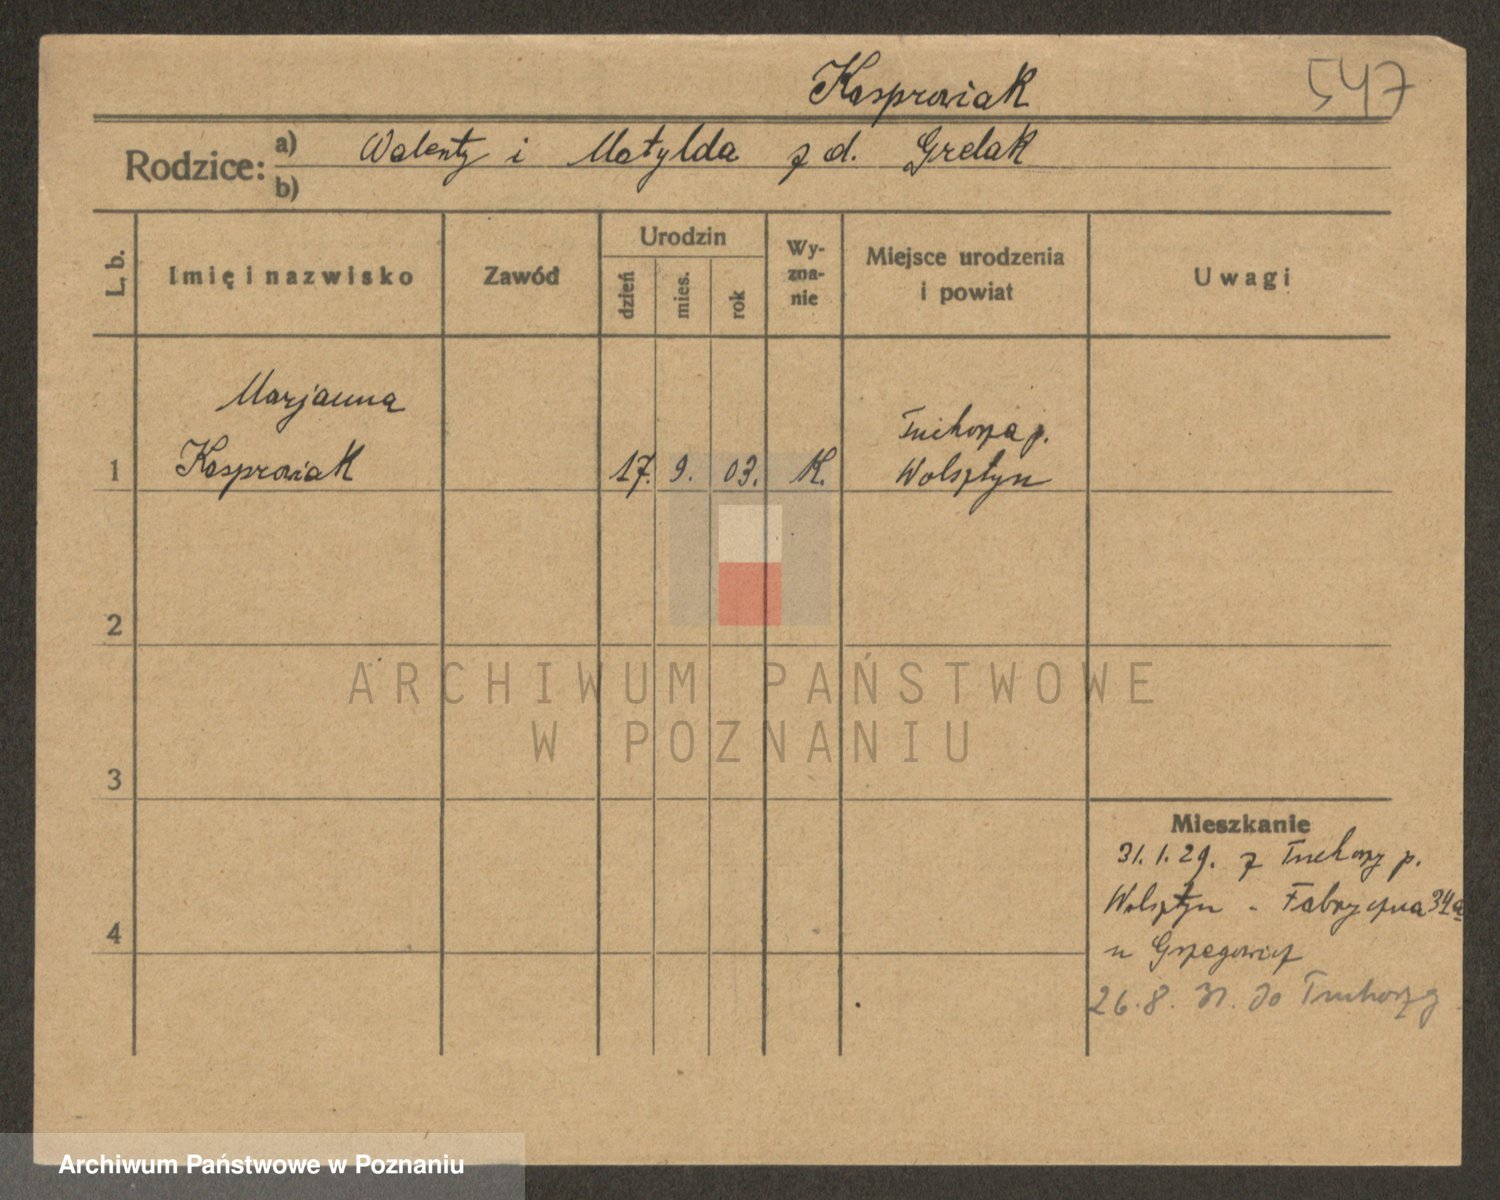 Kasprowiak 547
Rodzice: a) Walenty i Matylda z d. Grelak
b)
L. b. Imię i nazwisko Zawód Urodzin dzień mies. rok Wy-zna-nie Miejsce urodzenia i powiat Uwagi
Marjanna
Tuchorza p.
1 Kasprowiak 17. 9. 03. K. Wolsztyn
2
ARCHIWUM PAŃSTWOWE
W POZNANIU
3
Mieszkanie
31.1.29. z Tuchorzy p.
Wolsztyn - Fabryczna 34a
4
u
26.8.31. do Tuchorzy
Archiwum Państwowe w Poznaniu